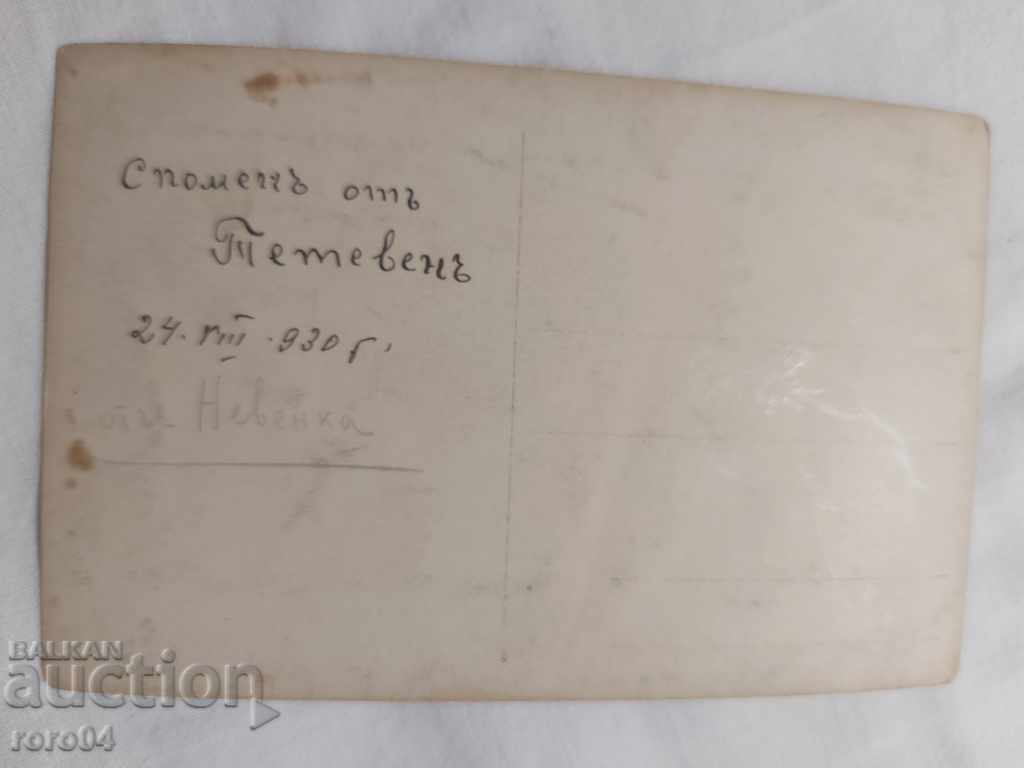 Споменъ отъ
Тетевенъ
24. VIII. 930 г.
отъ Невенка
BALKAN
auction
roro04